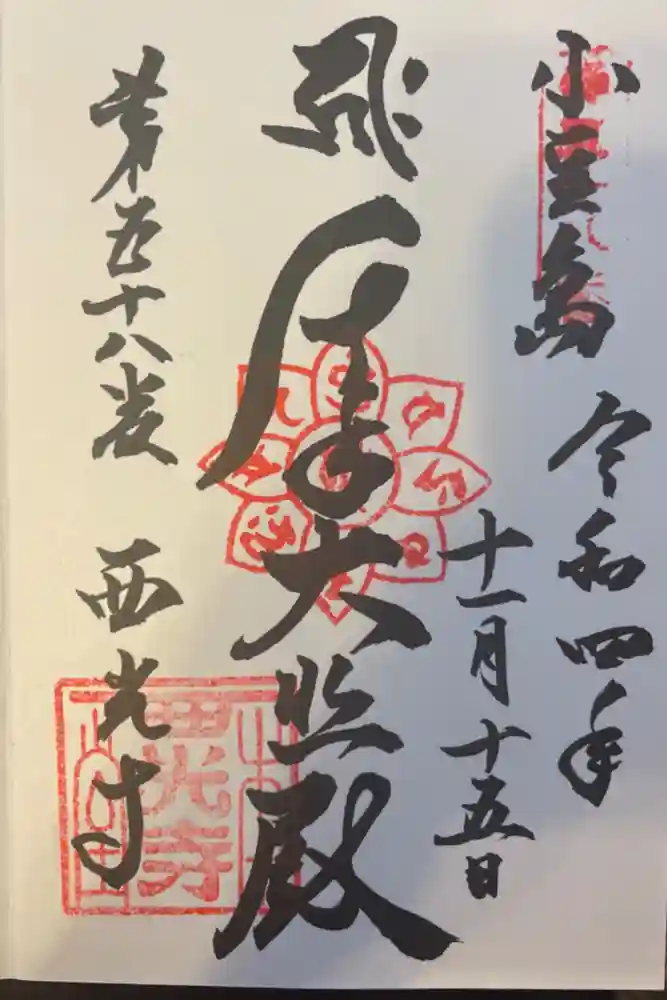 小豆島
令和四年
十一月十五日
大悲殿
第五十八番 西光寺
西光寺